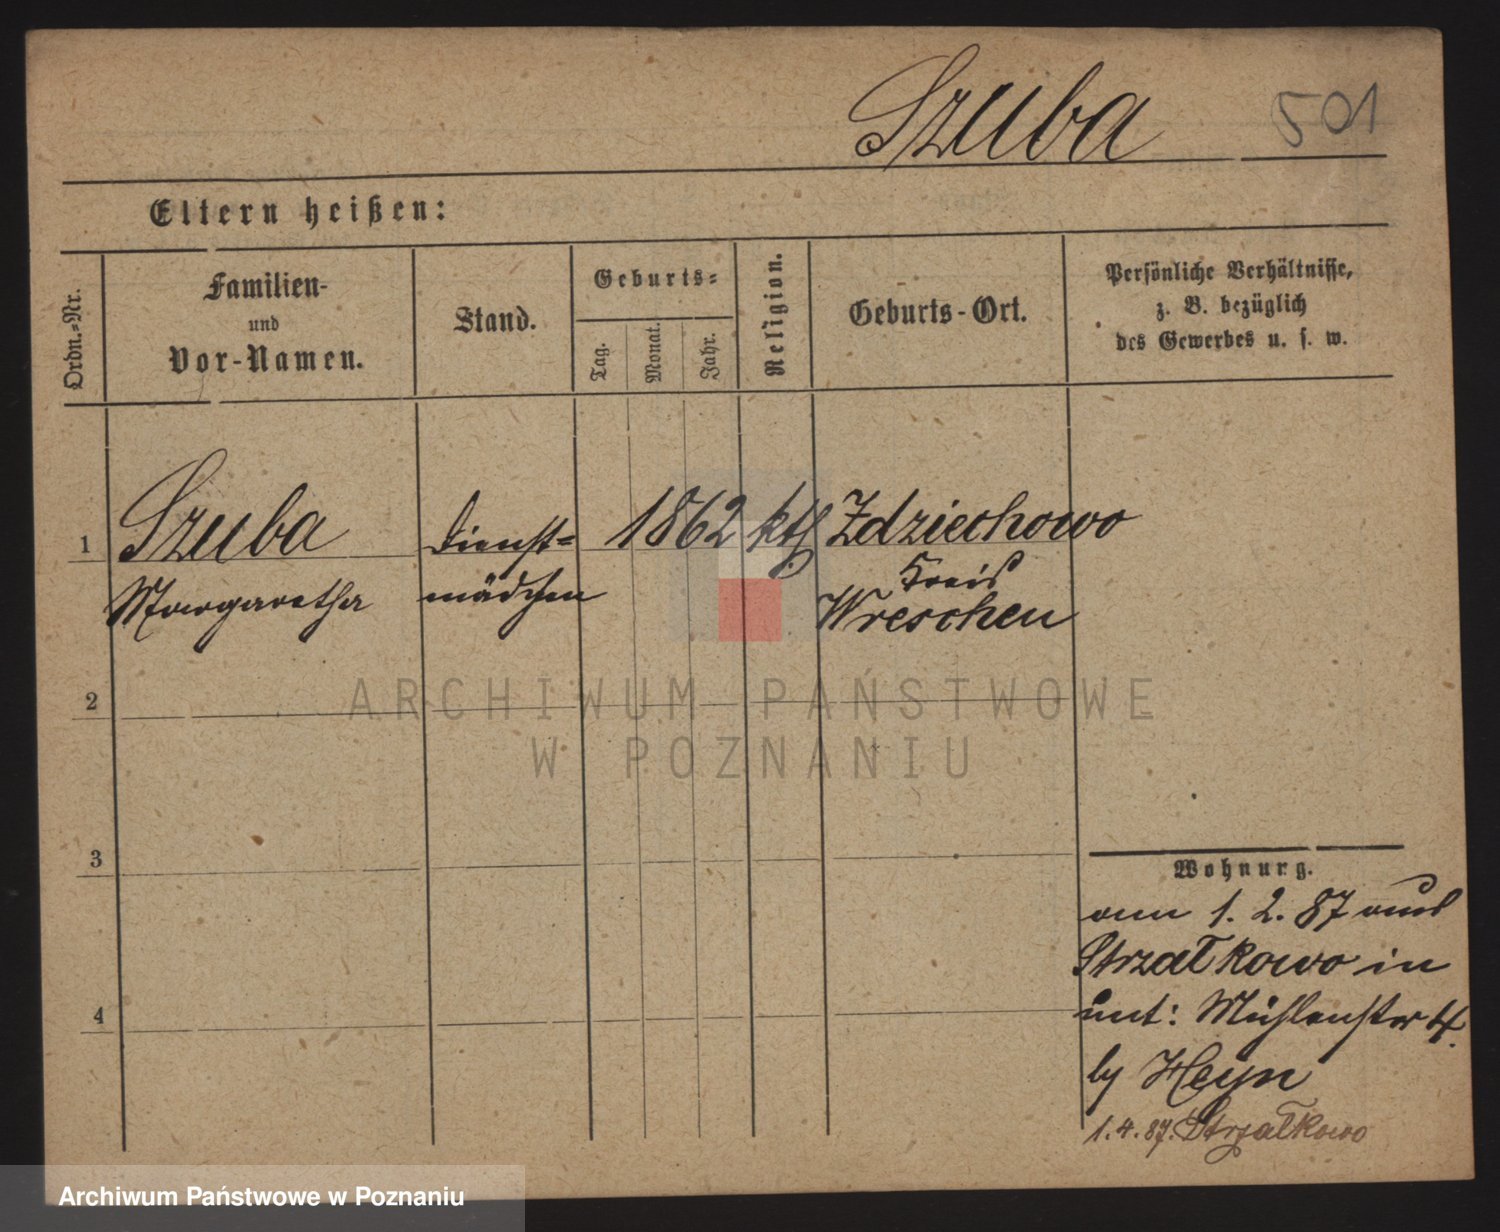 Szuba 501
Eltern heißen:
Ordn.-Nr.
Familien-
und
Vor-Namen.
Stand.
Geburts-
Tag.
Monat.
Jahr.
Religion.
Geburts-Ort.
Persönliche Verhältnisse,
z. B. bezüglich
des Gewerbes u. s. w.
1 Szuba Dienst= 1862 kth Zdziechowo
Margaretha mädchen Kreis
Wreschen
2
3
4
Wohnung.
am 1. 2. 87 aus
Strzałkowo in
unt: Mühlenstr 4.
by Heyn
1.4.87. Strzałkowo
ARCHIWUM PAŃSTWOWE
W POZNANIU
Archiwum Państwowe w Poznaniu